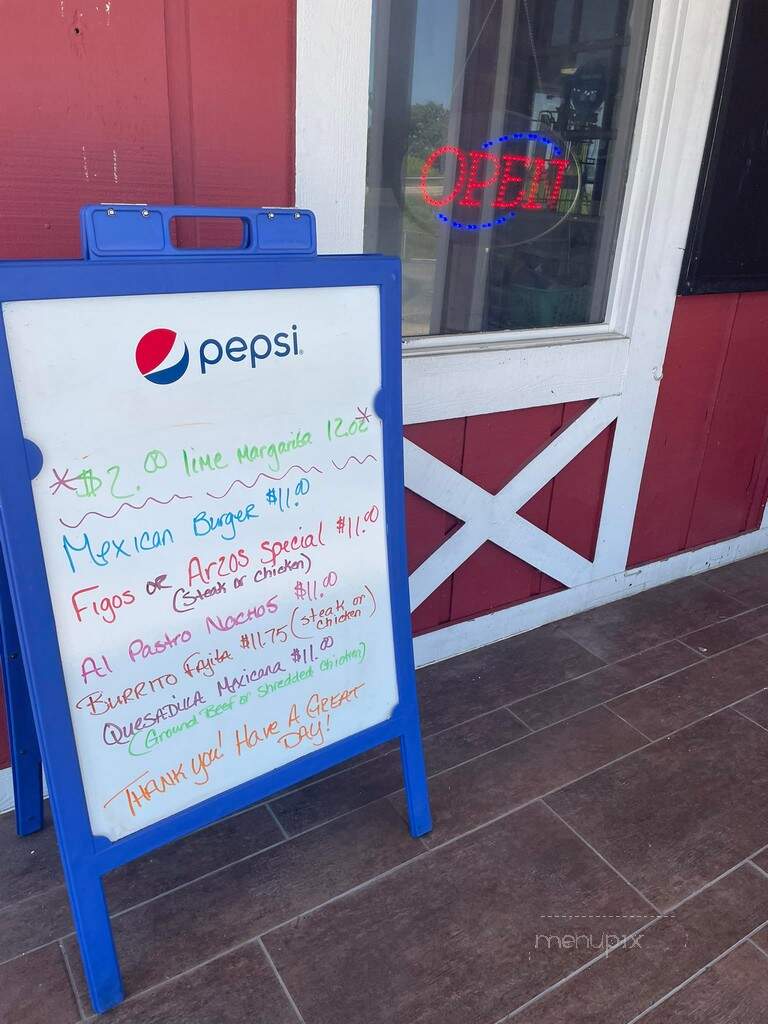 OPEN
pepsi
*$2.00 lime Margarita 12oz*
Mexican Burger $11.00
Figos or Arzos Special $11.00
(Steak or chicken)
Al Pastro Nachos $11.00
Burrito Fajita $11.75 (steak or chicken)
Quesadilla Mexicana $11.00
(Ground Beef or Shredded Chicken)
Thank you! Have A Great
Day!
menupix